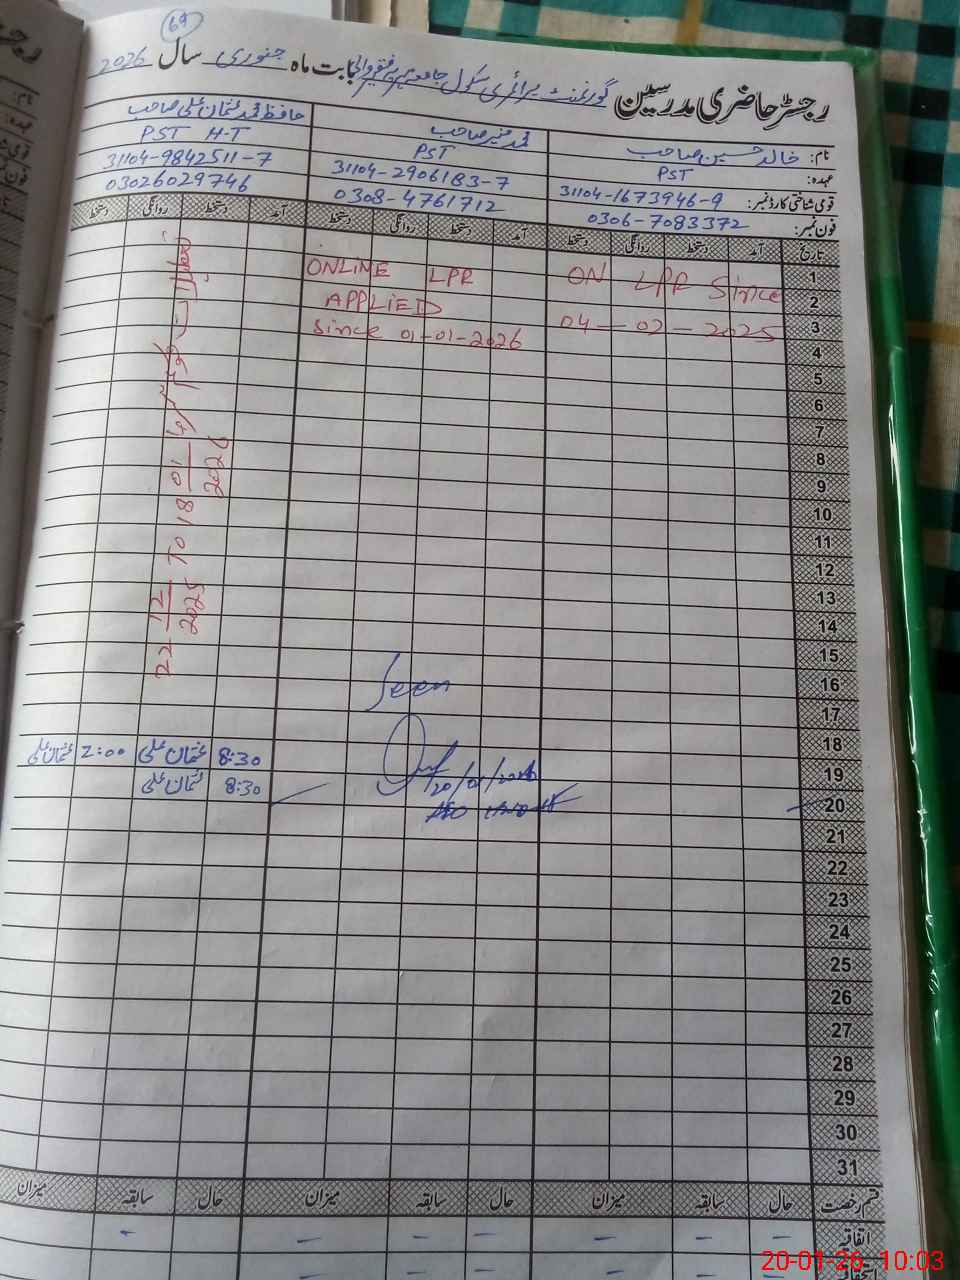 69
رجسٹر حاضری مدرسین گورنمنٹ پرائمری سکول بابت ماہ جنوری سال 2026
نام: خالد حسین صاحب
محمد منیر صاحب
حافظ محمد عثمان علی صاحب
عہدہ: PST
PST
PST H-T
قومی شناختی کارڈ نمبر: 31104-1673946-9
31104-2906183-7
31104-9842511-7
فون نمبر: 0306-7083372
0308-4761712
03026029746
تاریخ آمد دستخط روانگی دستخط آمد دستخط روانگی دستخط آمد دستخط روانگی دستخط
1
2
3
4
5
6
7
8
9
10
11
12
13
14
15
16
17
18
19
20
21
22
23
24
25
26
27
28
29
30
31
ON LPR Since
04-02-2025
ONLINE LPR
APPLIED
Since 01-01-2026
22 12/2025 TO 18 01/2026
8:30 عثمان علی 2:00 عثمان علی
8:30 عثمان علی
Seen
20/01/2026
AEO
قسم رخصت حال سابقہ میزان حال سابقہ میزان حال سابقہ میزان
اتفاقیہ - - - - - - -
20-01-26 10:03